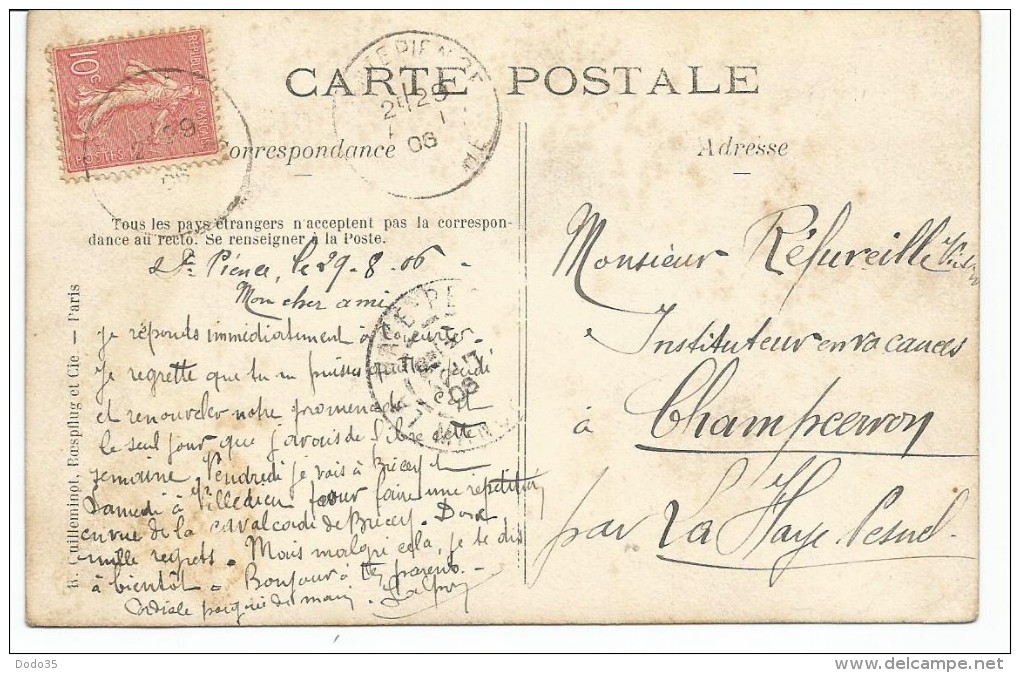 CARTE POSTALE
RÉPUBLIQUE FRANÇAISE
10 c
POSTES
2E 29
06
Correspondance
Adresse
Tous les pays étrangers n'acceptent pas la correspon-
dance au recto. Se renseigner à la Poste.
R. Guilleminot, Bœspflug et Cie. — Paris
St Pience, le 29-8-06
Mon cher ami
Je réponds immédiatement à
Je regrette que tu ne puisses
et renouveler notre promenade. C'est
le seul jour que j'avais de libre cette
semaine. Vendredi je vais à Brécey et
Samedi à Villedieu pour faire une répétition
en vue de la cavalcade de Brécey. Donc
mille regrets. Mais malgré cela, je te dis
à bientôt. Bonjour à tes parents.
Cordiale poignée de main.
Monsieur Réfureille
Instituteur en vacances
à Champcervon
par La Haye Pesnel.
Dodo35
http://www.delcampe.net